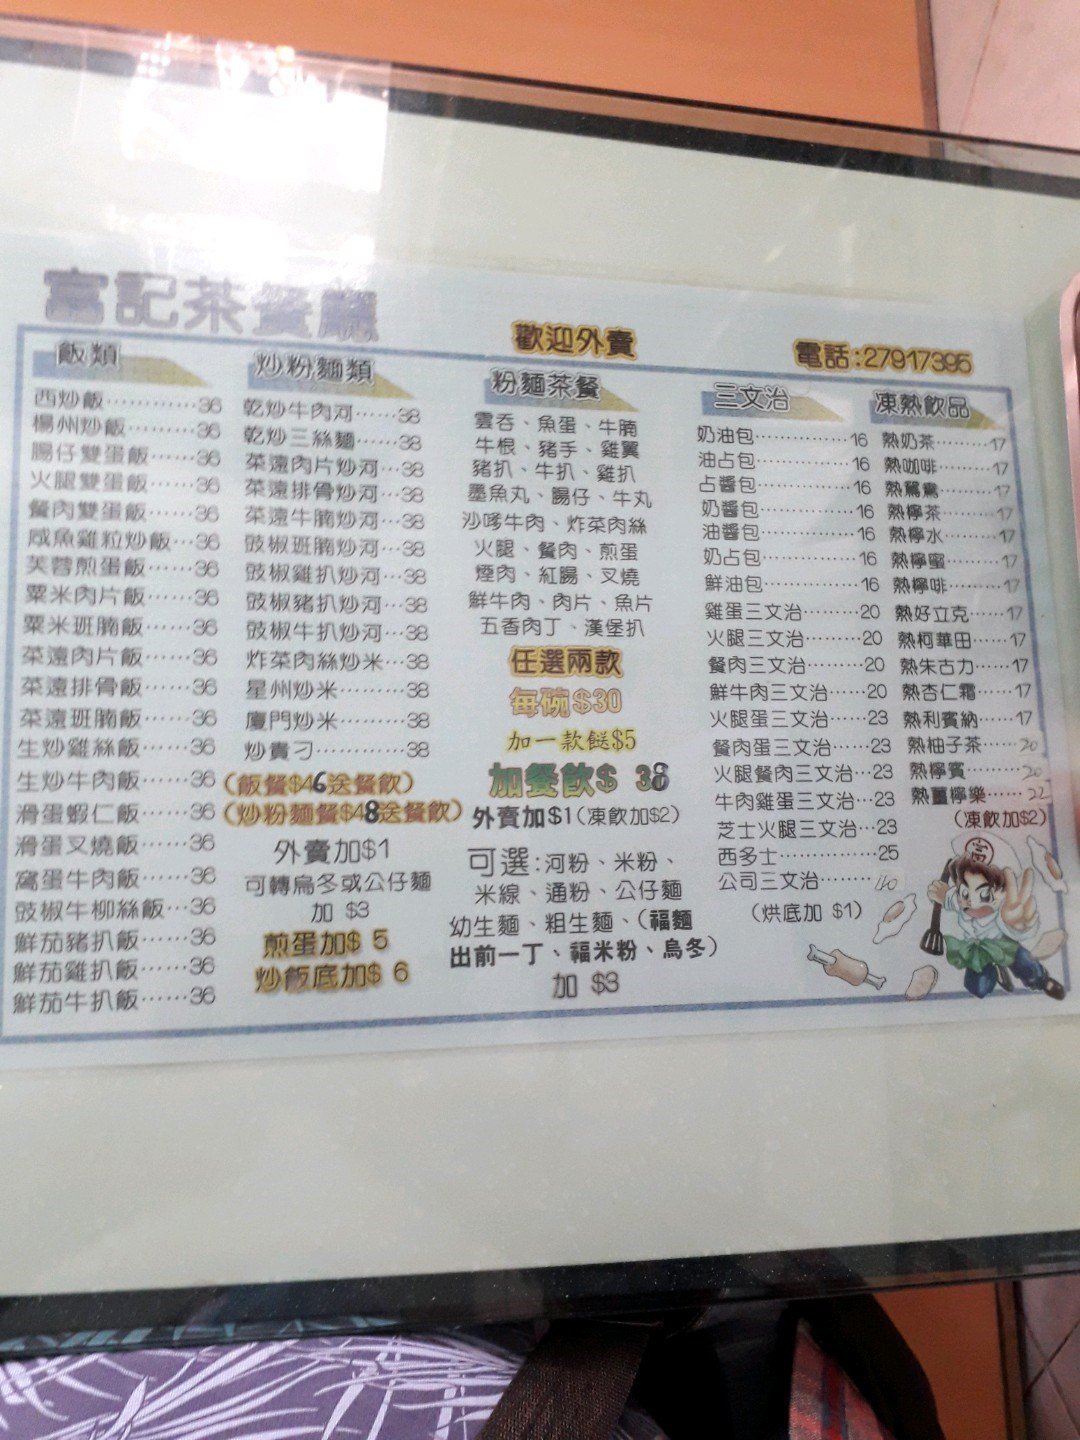 富記茶餐廳
歡迎外賣
電話:27917395
飯類
西炒飯............36
楊州炒飯.........36
腸仔雙蛋飯......36
火腿雙蛋飯......36
餐肉雙蛋飯......36
咸魚雞粒炒飯...36
芙蓉煎蛋飯......36
粟米肉片飯......36
粟米班腩飯......36
菜遠肉片飯......36
菜遠排骨飯......36
菜遠班腩飯......36
生炒雞絲飯......36
生炒牛肉飯......36
滑蛋蝦仁飯......36
滑蛋叉燒飯......36
窩蛋牛肉飯......36
豉椒牛柳絲飯...36
鮮茄豬扒飯......36
鮮茄雞扒飯......36
鮮茄牛扒飯......36
炒粉麵類
乾炒牛肉河......38
乾炒三絲麵......38
菜遠肉片炒河...38
菜遠排骨炒河...38
菜遠牛腩炒河...38
豉椒班腩炒河...38
豉椒雞扒炒河...38
豉椒豬扒炒河...38
豉椒牛扒炒河...38
炸菜肉絲炒米...38
星州炒米.........38
廈門炒米.........38
炒貴刁............38
(飯餐$46送餐飲)
(炒粉麵餐$48送餐飲)
外賣加$1
可轉烏冬或公仔麵
加 $3
煎蛋加$ 5
炒飯底加$ 6
粉麵茶餐
雲吞、魚蛋、牛腩
牛根、豬手、雞翼
豬扒、牛扒、雞扒
墨魚丸、腸仔、牛丸
沙嗲牛肉、炸菜肉絲
火腿、餐肉、煎蛋
煙肉、紅腸、叉燒
鮮牛肉、肉片、魚片
五香肉丁、漢堡扒
任選兩款
每碗$30
加一款餸$5
加餐飲$ 38
外賣加$1(凍飲加$2)
可選:河粉、米粉、
米線、通粉、公仔麵
幼生麵、粗生麵、(福麵
出前一丁、福米粉、烏冬)
加 $3
三文治
奶油包...............16
油占包...............16
占醬包...............16
奶醬包...............16
油醬包...............16
奶占包...............16
鮮油包...............16
雞蛋三文治.........20
火腿三文治.........20
餐肉三文治.........20
鮮牛肉三文治......20
火腿蛋三文治......23
餐肉蛋三文治......23
火腿餐肉三文治...23
牛肉雞蛋三文治...23
芝士火腿三文治...23
西多士...............25
公司三文治.........40
(烘底加 $1)
凍熱飲品
熱奶茶.........17
熱咖啡.........17
熱鴛鴦.........17
熱檸茶.........17
熱檸水.........17
熱檸蜜.........17
熱檸啡.........17
熱好立克......17
熱柯華田......17
熱朱古力......17
熱杏仁霜......17
熱利賓納......17
熱柚子茶......20
熱檸賓.........20
熱薑檸樂......22
(凍飲加$2)